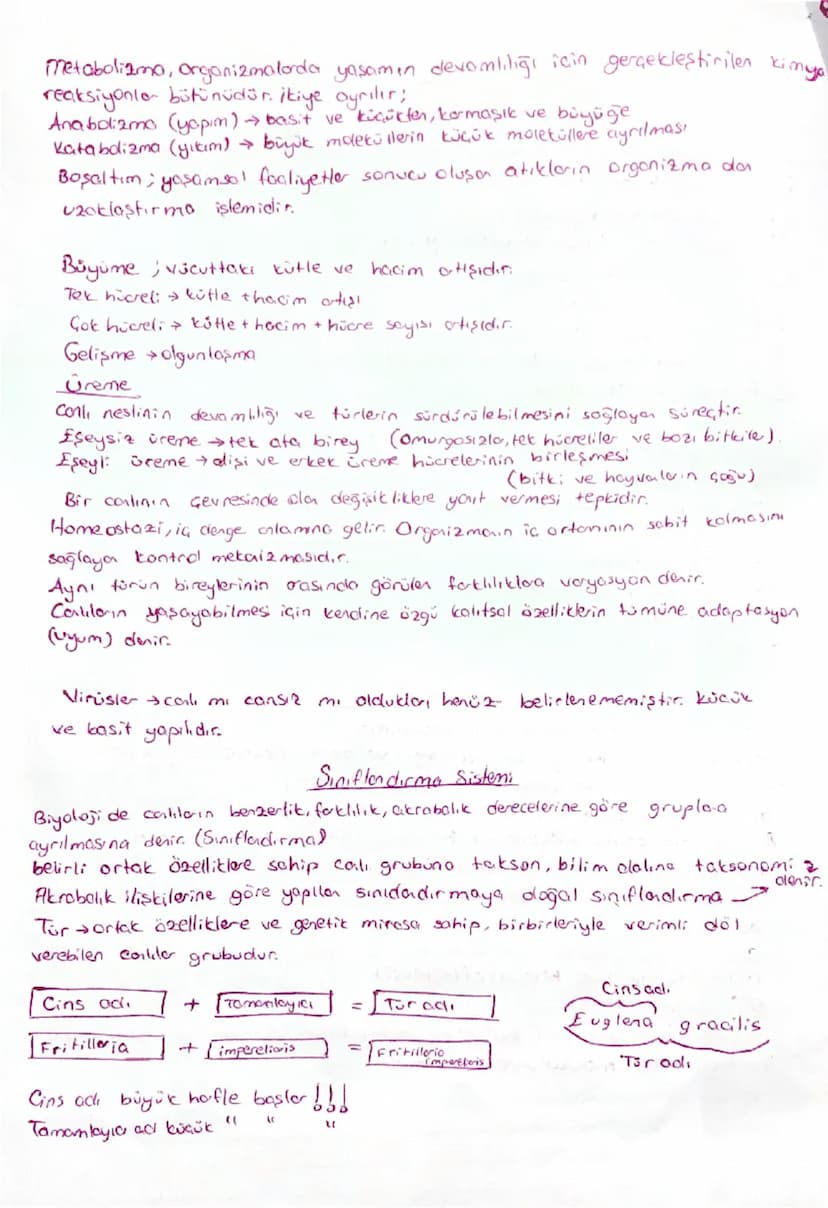 Metabolizma, organizmalarda yaşamın devamlılığı için gerçekleştirilen kimya
reaksiyonlar bütünüdür. İkiye ayrılır;
Anabolizma (yapım) → basit ve küçükten, karmaşık ve büyüğe
Katabolizma (yıkım) → büyük moleküllerin küçük moleküllere ayrılması
Boşaltım ; yaşamsal faaliyetler sonucu oluşan atıkların organizma dan
uzaklaştırma işlemidir.
Büyüme ; vücuttaki kütle ve hacim artışıdır.
Tek hücreli → kütle + hacim artışı
Çok hücreli → kütle + hacim + hücre sayısı artışıdır.
Gelişme → olgunlaşma
Üreme
Canlı neslinin devamlılığı ve türlerin sürdürülebilmesini sağlayan süreçtir.
Eşeysiz üreme → tek ata birey (omurgasızlar, tek hücreliler ve bazı bitkiler).
Eşeyli üreme → dişi ve erkek üreme hücrelerinin birleşmesi
(bitki ve hayvanların çoğu)
Bir canlının çevresinde olan değişikliklere yanıt vermesi tepkidir.
Homeostazi, iç denge anlamına gelir. Organizmanın iç ortamının sabit kalmasını
sağlayan kontrol mekaizmasıdır.
Aynı türün bireylerinin arasında görülen farklılıklara varyasyon denir.
Canlıların yaşayabilmesi için kendine özgü kalıtsal özelliklerin tümüne adaptasyon
(uyum) denir.
Virüsler → canlı mı cansız mı oldukları henüz belirlenememiştir. Küçük
ve basit yapılıdır.
Sınıflandırma Sistemi
Biyoloji de canlıların benzerlik, farklılık, akrabalık derecelerine göre gruplara
ayrılmasına denir. (Sınıflandırma)
belirli ortak özelliklere sahip canlı grubuna takson, bilim dalına taksonomi
Akrabalık ilişkilerine göre yapılan sınıdandırmaya doğal sınıflandırma → denir.
Tür → ortak özelliklere ve genetik mirasa sahip, birbirleriyle verimli döl
verebilen canlılar grubudur.
Cins adı + Tamamlayıcı = Tür adı
Fritillaria + imperelioris = Fritillario
Cins adı
Euglena gracilis
Tür adı
Cins adı büyük harfle başlar !!!
Tamamlayıcı adı küçük " " "